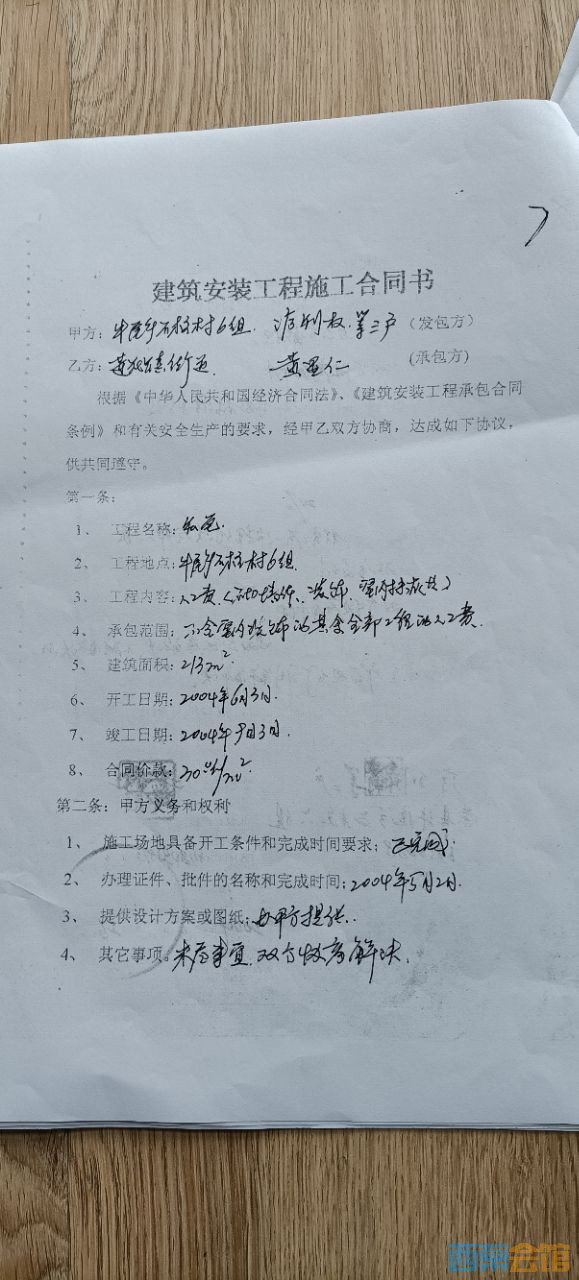 建筑安装工程施工合同书
甲方: 石柱村6组. 第三户 (发包方)
乙方: 黄 仁 (承包方)
根据《中华人民共和国经济合同法》、《建筑安装工程承包合同
条例》和有关安全生产的要求，经甲乙双方协商，达成如下协议，
供共同遵守。
第一条:
1、 工程名称:
2、 工程地点: 石柱村6组.
3、 工程内容: 人工费
4、 承包范围: 室内 其余全部工程 人工费.
5、 建筑面积: 213m².
6、 开工日期: 2004年6月3日.
7、 竣工日期: 2004年 月3日.
8、 合同价款: /m².
第二条: 甲方义务和权利
1、 施工场地具备开工条件和完成时间要求: 已完成.
2、 办理证件、批件的名称和完成时间: 2004年5月2日.
3、 提供设计方案或图纸: 甲方提供.
4、 其它事项: 未尽事宜. 双方 解决.
西京会馆